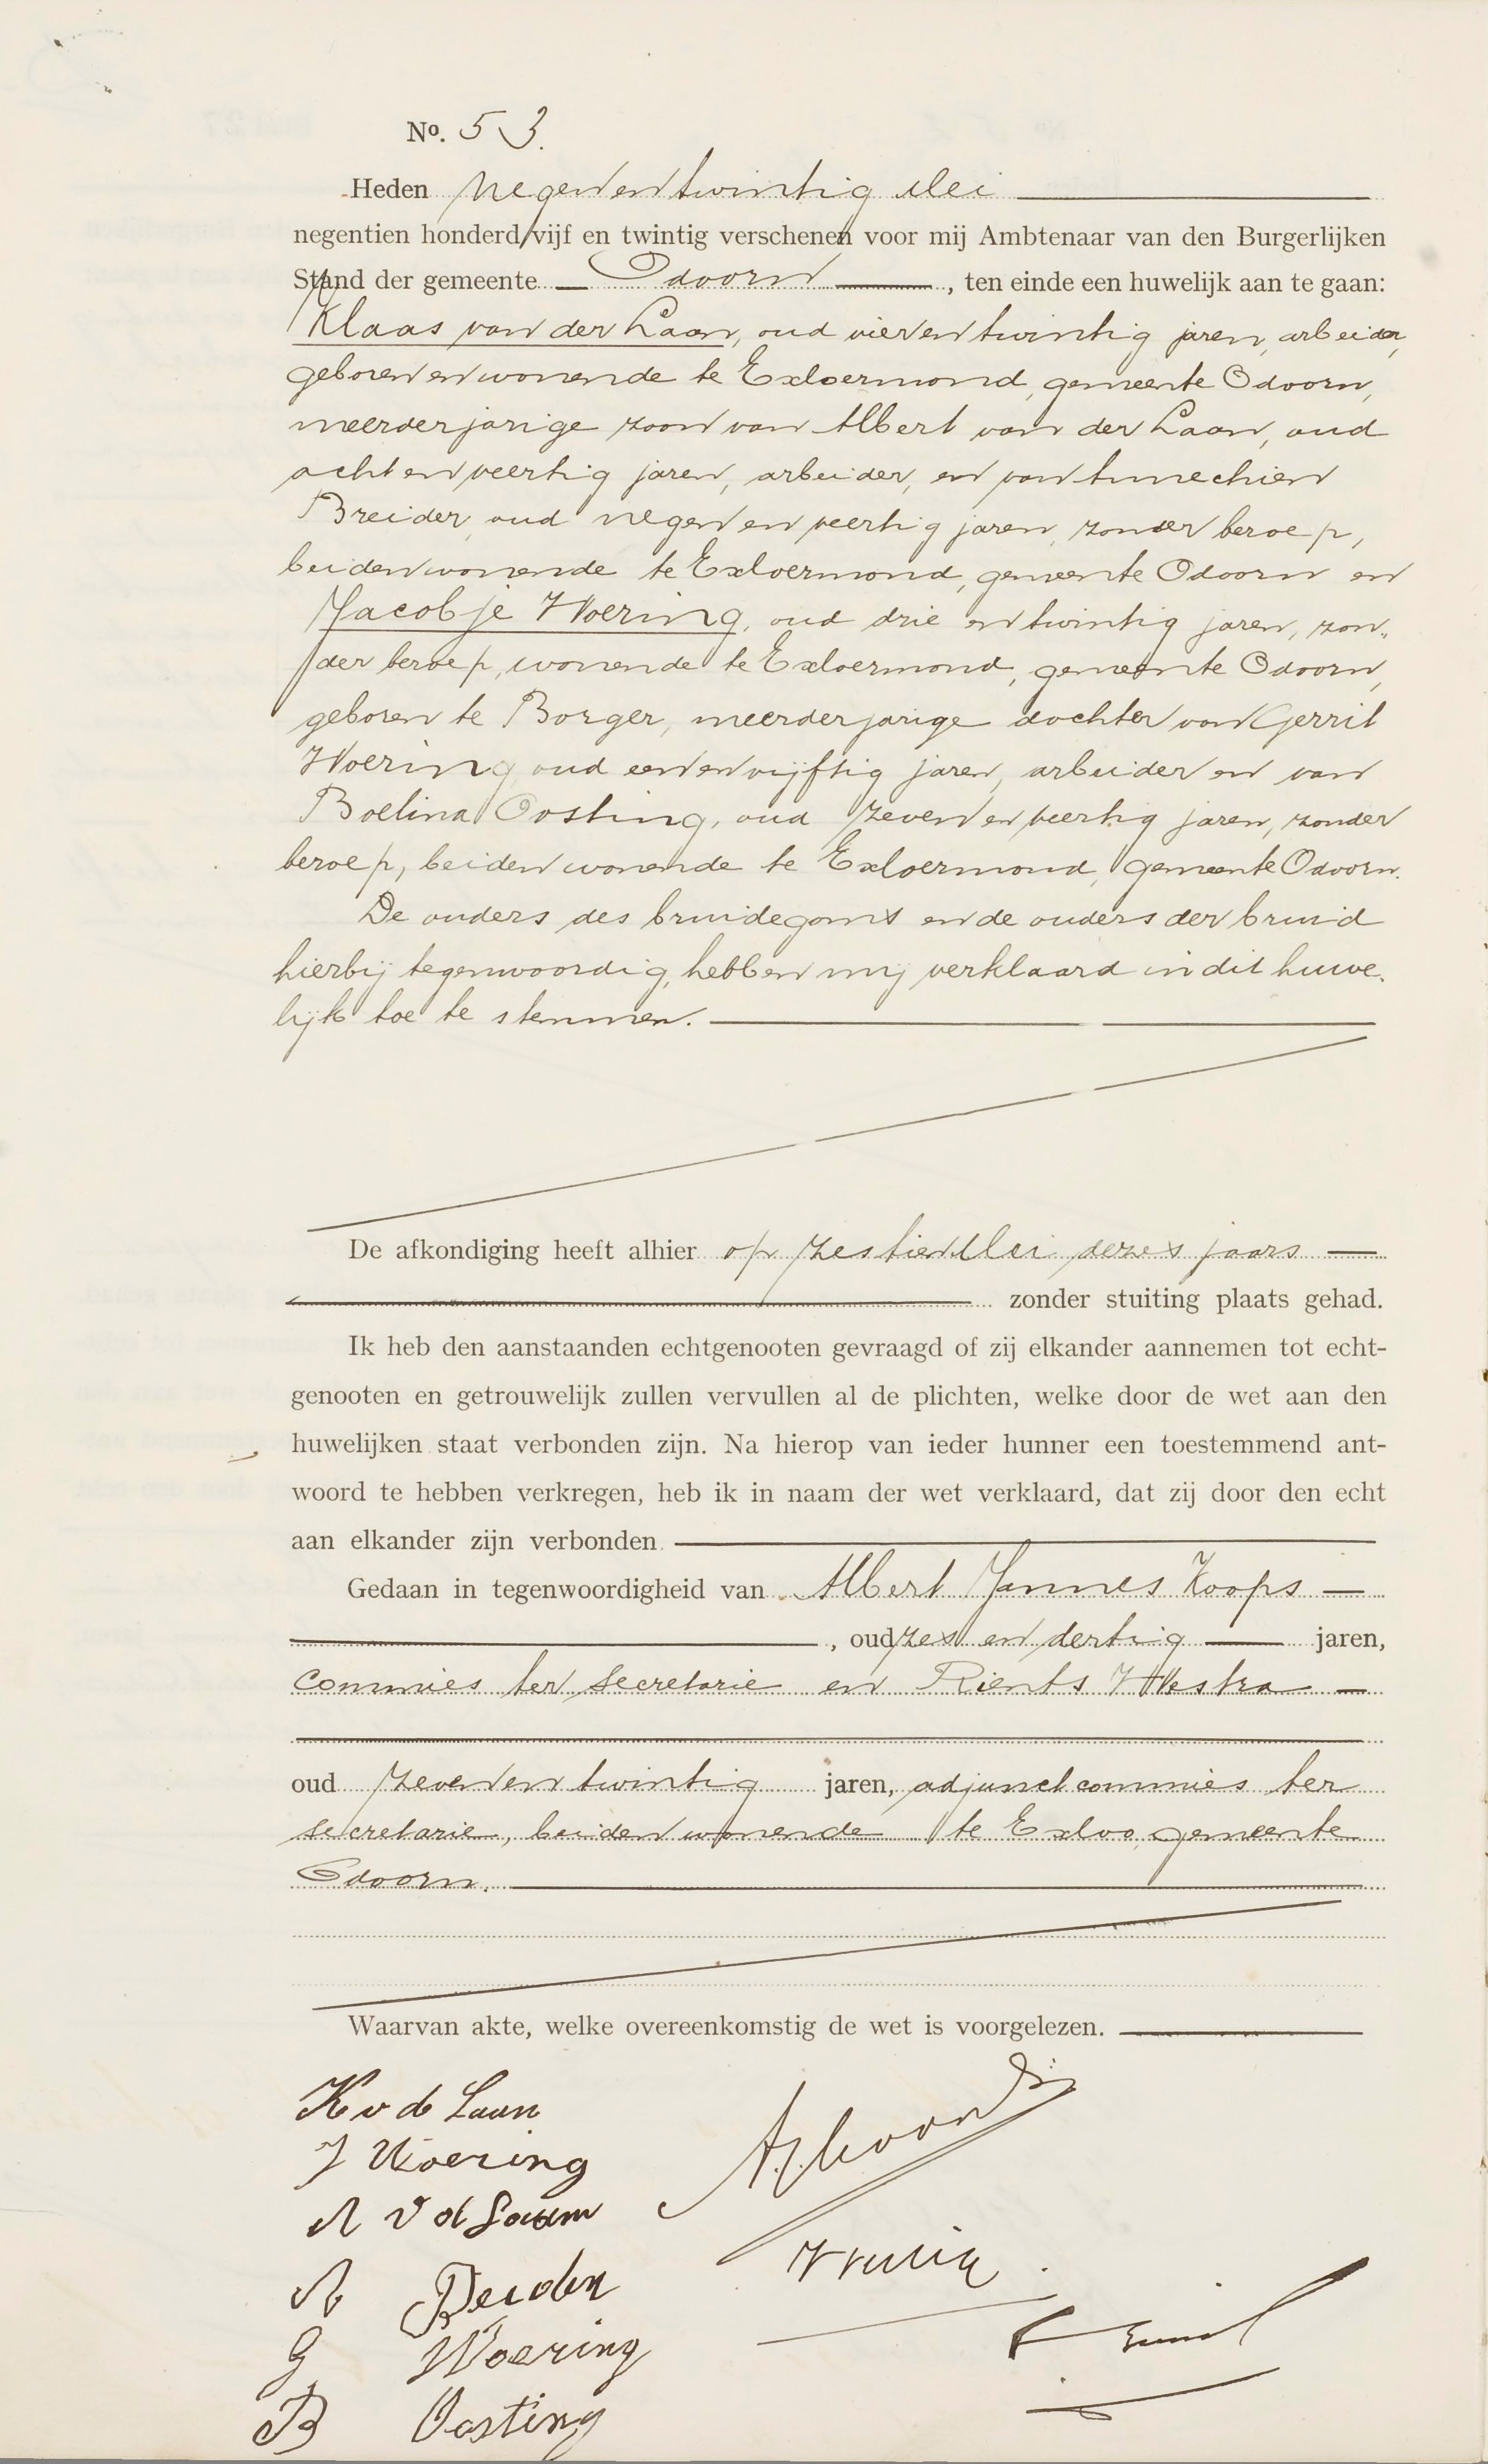 No. 53.
Heden negen en twintig Mei
negentien honderd vijf en twintig verschenen voor mij Ambtenaar van den Burgerlijken
Stand der gemeente Odoorn, ten einde een huwelijk aan te gaan:
Klaas van der Laan, oud vier en twintig jaren, arbeider,
geboren en wonende te Exloermond, gemeente Odoorn,
meerderjarige zoon van Albert van der Laan, oud
acht en veertig jaren, arbeider, en van
Breider, oud negen en veertig jaren, zonder beroep,
beiden wonende te Exloermond, gemeente Odoorn en
Jacobje Woering, oud drie en twintig jaren, zon„
der beroep, wonende te Exloermond, gemeente Odoorn,
geboren te Borger, meerderjarige dochter van Gerrit
Woering, oud een en vijftig jaren, arbeider en van
Boelina Oosting, oud zeven en veertig jaren, zonder
beroep, beiden wonende te Exloermond, gemeente Odoorn.
De ouders des bruidegoms en de ouders der bruid
hierbij tegenwoordig, hebben mij verklaard in dit huwe„
lijk toe te stemmen.
De afkondiging heeft alhier op zestien Mei dezes jaars
zonder stuiting plaats gehad.
Ik heb den aanstaanden echtgenooten gevraagd of zij elkander aannemen tot echt-
genooten en getrouwelijk zullen vervullen al de plichten, welke door de wet aan den
huwelijken staat verbonden zijn. Na hierop van ieder hunner een toestemmend ant-
woord te hebben verkregen, heb ik in naam der wet verklaard, dat zij door den echt
aan elkander zijn verbonden
Gedaan in tegenwoordigheid van Albert Jannes Koops
, oud zes en dertig jaren,
commies ter secretarie en Rients Westra
oud zeven en twintig jaren, adjunct commies ter
secretarie, beiden wonende te Exloo, gemeente
Odoorn.
Waarvan akte, welke overeenkomstig de wet is voorgelezen.
K v d Laan
J Woering
A v d Laan
A Breider
G Woering
B Oosting